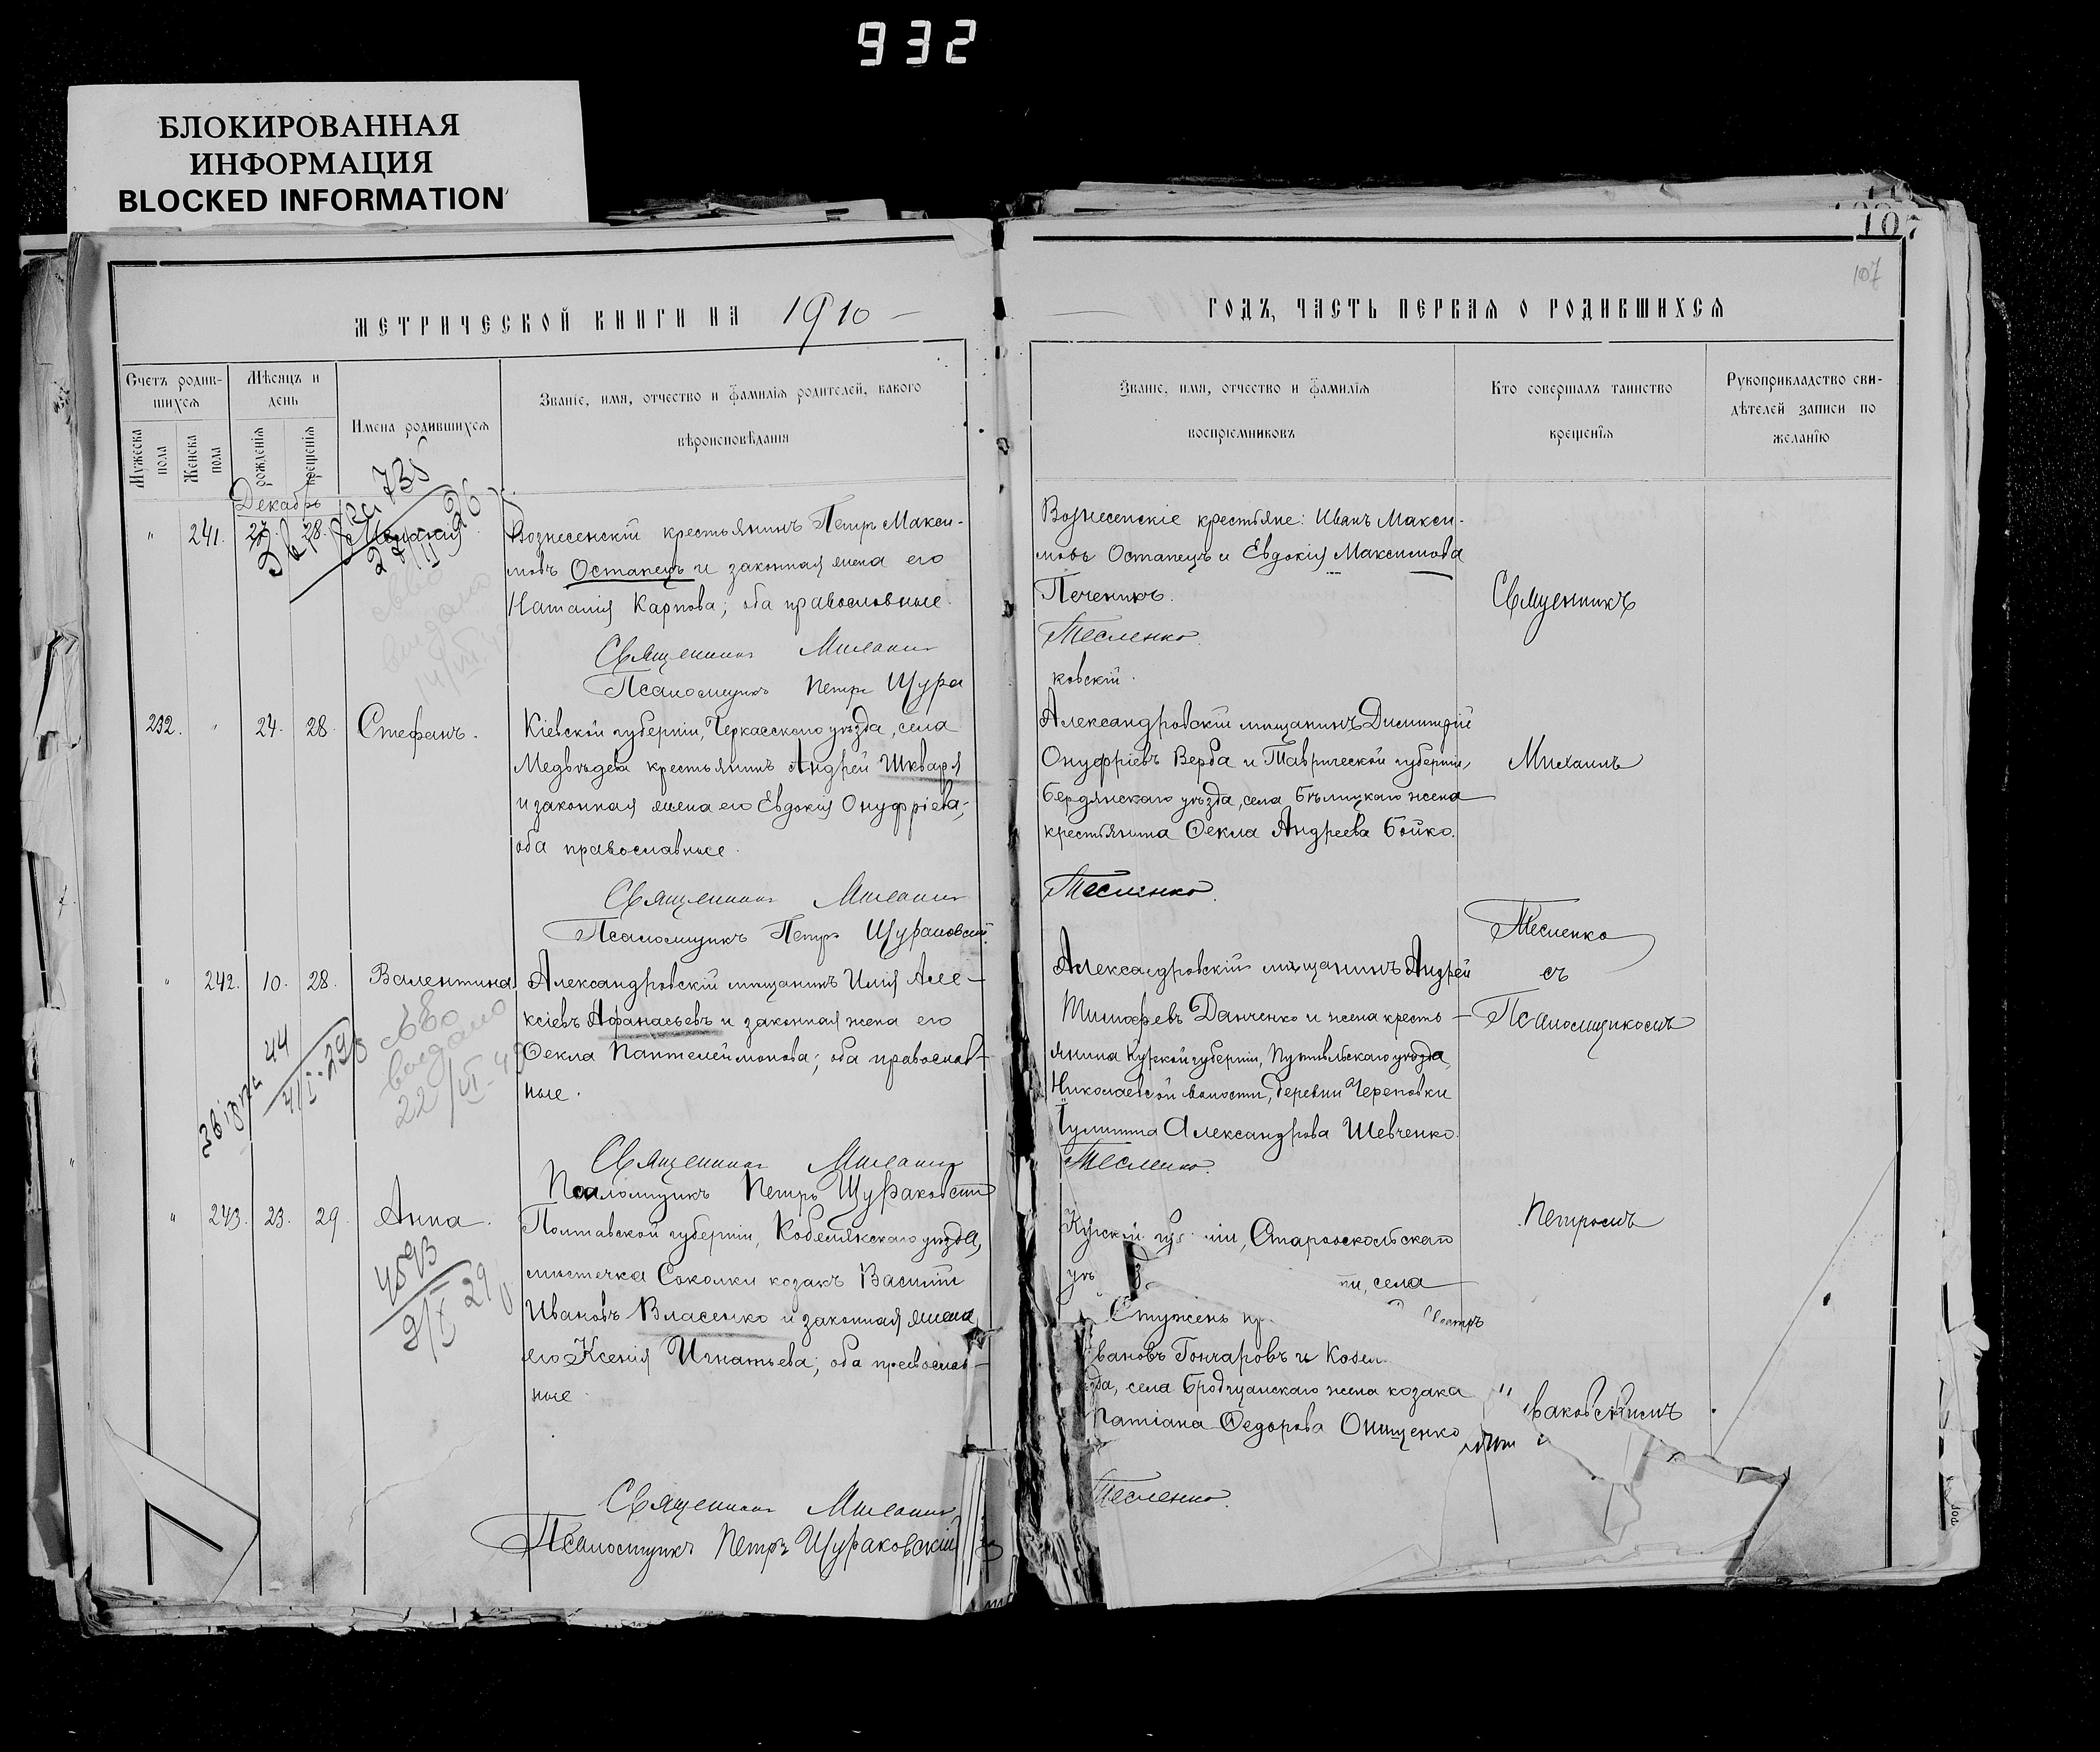 932
БЛОКИРОВАННАЯ
ИНФОРМАЦИЯ
BLOCKED INFORMATION
107
107
МЕТРИЧЕСКОЙ КНИГИ НА 1910
ГОДЪ, ЧАСТЬ ПЕРВАЯ О РОДИВШИХСЯ
Счетъ родив-
шихся
Мѣсяцъ и
день
Мужеска
пола
Женска
пола
рожденія
крещенія
Имена родившихся
Званіе, имя, отчество и фамилія родителей, какого
вѣроисповѣданія
Званіе, имя, отчество и фамилія
воспріемниковъ
Кто совершалъ таинство
крещенія
Рукоприкладство сви-
дѣтелей записи по
желанію
Декабрь
" 241. 28.
Вознесенскій крестьянинъ Петръ Макси-
мовъ Остапецъ и законная жена его
Наталія Карпова; оба православные.
Священникъ Михаилъ
Псаломщикъ Петръ Щура
Вознесенскіе крестьяне: Иванъ Макси-
мовъ Остапецъ и Евдокія Максимова
Печеникъ.
Тесленко
ковскій.
Священникъ
232. " 24. 28. Стефанъ.
Кіевской губерніи, Черкасскаго уѣзда, села
Медвѣдева крестьянинъ Андрей Шкваря
и законная жена его Евдокія Онуфріева;
оба православные.
Священникъ Михаилъ
Псаломщикъ Петръ Щураковскій
Александровскій мѣщанинъ Димитрій
Онуфріевъ Верба и Таврической губерніи,
Бердянскаго уѣзда, села Бѣлицкаго жена
крестьянина Ѳекла Андреева Бойко.
Тесленко.
Михаилъ
Тесленко
" 242. 10. 28. Валентина
44
свво
выдано
Александровскій мѣщанинъ Илія Але-
ксіевъ Афанасьевъ и законная жена его
Ѳекла Пантелеймонова; оба православ-
ные.
Священникъ Михаилъ
Псаломщикъ Петръ Щураковскій
Александровскій мѣщанинъ Андрей
Тимофеевъ Данченко и жена кресть-
янина Курской губерніи, Путивльскаго уѣзда,
Николаевской волости, деревни Череповки
Іулитта Александрова Шевченко.
Тесленко.
съ
Псаломщикомъ
" 243. 23. 29. Анна.
4593
Полтавской губерніи, Кобелякскаго уѣзда,
мѣстечка Соколки козакъ Василій
Ивановъ Власенко и законная жена
его Ксенія Игнатьева; оба православ-
ные.
Священникъ Михаилъ
Псаломщикъ Петръ Щураковскій
Старооскольскаго
уѣ села
вановъ Гончаровъ и Кобел
зда, села Бродщанскаго жена козака
Татіана Ѳедорова Онищенко
Тесленко.
Петромъ
раковскимъ